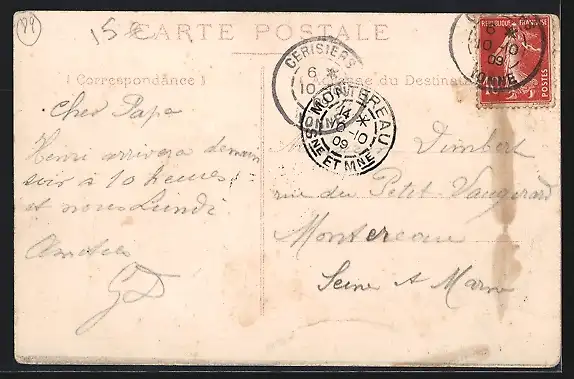 (99)
15
CARTE POSTALE
RÉPUBLIQUE FRANÇAISE
POSTES
CERISIERS
6 *
10
6 *
10 10
09
YONNE
MONTEREAU
14 *
6-10
09
SNE ET MNE
( Correspondance )
Adresse du Destinataire
Cher Papa
Henri arrivera demain
soir à 10 heures
et nous Lundi
GD
Dimbert
rue du Petit Vaugirard
Montereau
Seine et Marne